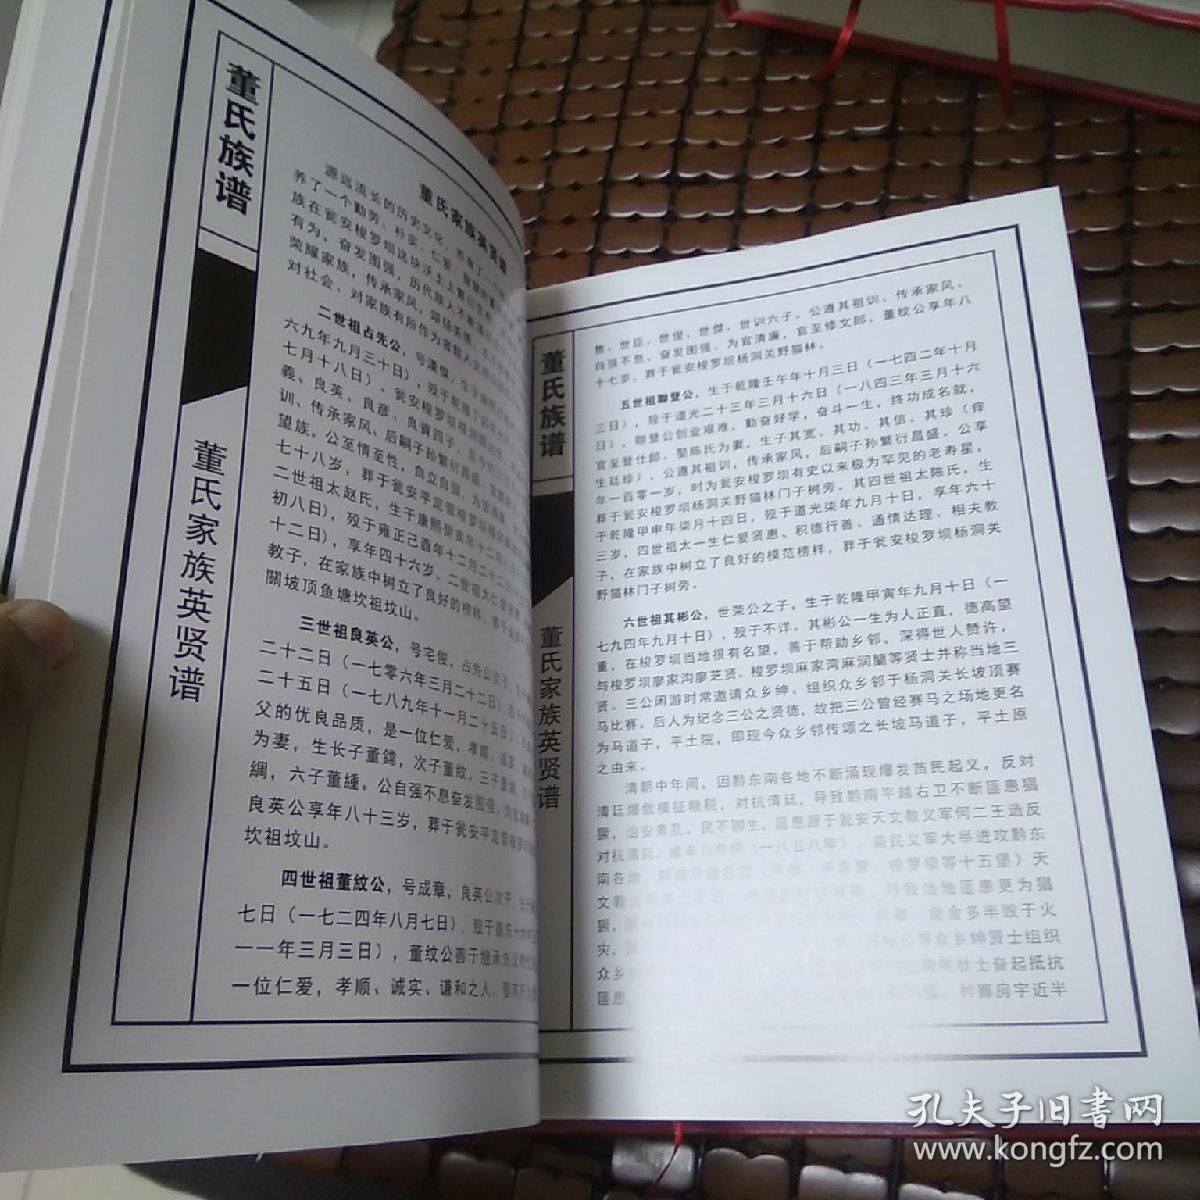 董氏族谱
董氏家族英贤谱
董氏家族英贤谱
源远流长的历史文化，养育了一个
养了一个勤劳、朴实、仁爱、智慧的董
族在瓮安梭罗坝这块沃土上繁衍生
有为，奋发图强，历代族人不断涌
荣耀家族，传承家风，颂扬美德，
对社会、对家族有所作为者载入
二世祖占先公，号漢傑，生于
六九年九月三十日），殁于乾隆
七月十八日）。瓮安梭罗坝
義、良英、良彦、良寶四子，
训、传承家风，后嗣子孙繁衍昌盛，
望族。公至情至性，自立自强，为官清廉，
七十八岁，葬于瓮安平定营梭罗坝
二世祖太赵氏，生于康熙癸亥年十二月八
初八日），殁于雍正己酉年十二月二十二日
十二日），享年四十六岁，二世祖太仁慈
教子，在家族中树立了良好的榜样，葬于
關坡顶鱼塘坎祖坟山。
三世祖良英公，号宅俊，占先公次子，生于
二十二日（一七零六年三月二十二日），殁于
二十五日（一七八九年十一月二十五日），
父的优良品质，是一位仁爱，孝顺、诚实、
为妻，生长子董鐫，次子董紋，三子董
綢，六子董緟。公自强不息奋发图强，为官清廉，
良英公享年八十三岁，葬于瓮安平定营梭罗
坎祖坟山。
四世祖董紋公，号成章，良英公次子，生于
七日（一七二四年八月七日），殁于嘉庆十六年
一一年三月三日），董纹公善于继承先父的
一位仁爱，孝顺、诚实、谦和之人，娶
董氏族谱
董氏家族英贤谱
儁、世臣、世俊、世傑、世训六子，公遵其祖训、传承家风，
自强不息、奋发图强、为官清廉，官至修文郎，董纹公享年八
十七岁，葬于瓮安梭罗坝杨洞关野猫林。
五世祖聯登公，生于乾隆壬午年十月三日（一七四二年十月
三日），殁于道光二十三年三月十六日（一八四三年三月十六
日），聯登公创业艰难，勤奋好学，奋斗一生，终功成名就，
官至登仕郎。娶陈氏为妻，生子其宽、其功、其信、其珍（庠
生廷珍），公遵其祖训，传承家风，后嗣子孙繁衍昌盛，公享
年一百零一岁，时为瓮安梭罗坝有史以来极为罕见的老寿星，
葬于瓮安梭罗坝杨洞关野猫林门子树旁。其四世祖太陈氏，生
于乾隆甲申年柒月十四日，殁于道光柒年九月十日，享年六十
三岁，四世祖太一生仁爱贤惠、积德行善、通情达理、相夫教
子，在家族中树立了良好的模范榜样，葬于瓮安梭罗坝杨洞关
野猫林门子树旁。
六世祖其彬公，世荣公之子，生于乾隆甲寅年九月十日（一
七九四年九月十日），殁于不详。其彬公一生为人正直，德高望
重，在梭罗坝当地很有名望，善于帮助乡邻，深得世人赞许，
与梭罗坝廖家沟廖芝贤、梭罗坝麻家湾麻润蘭等贤士并称当地三
贤。三公闲游时常邀请众乡绅、组织众乡邻于杨洞关长坡顶赛
马比赛。后人为纪念三公之贤德，故把三公曾经赛马之场地更名
为马道子，平土院，即现今众乡邻传颂之长坡马道子，平土原
之由来。
清朝中年间，因黔东南各地不断涌现爆发苗民起义，反对
清廷爆敛横征赊税，对抗清廷，导致黔南平越右卫不断匪患猖
獗，治安紊乱，民不聊生，匪患源于瓮安天文教义军何二王造反
对抗清廷。咸丰八年间（一八五八年），苗民义军大举进攻黔东
南各地、黔南平越右卫（牛场、平定营、梭罗坝等十五堡）天
文教义军何二王
导致当地匪患更为猖
獗，
村寨，房舍多半毁于火
灾，
彬公等众乡绅贤士组织
众乡
青年壮士奋起抵抗
匪患，
村寨房宇近半
孔夫子旧书网
www.kongfz.com